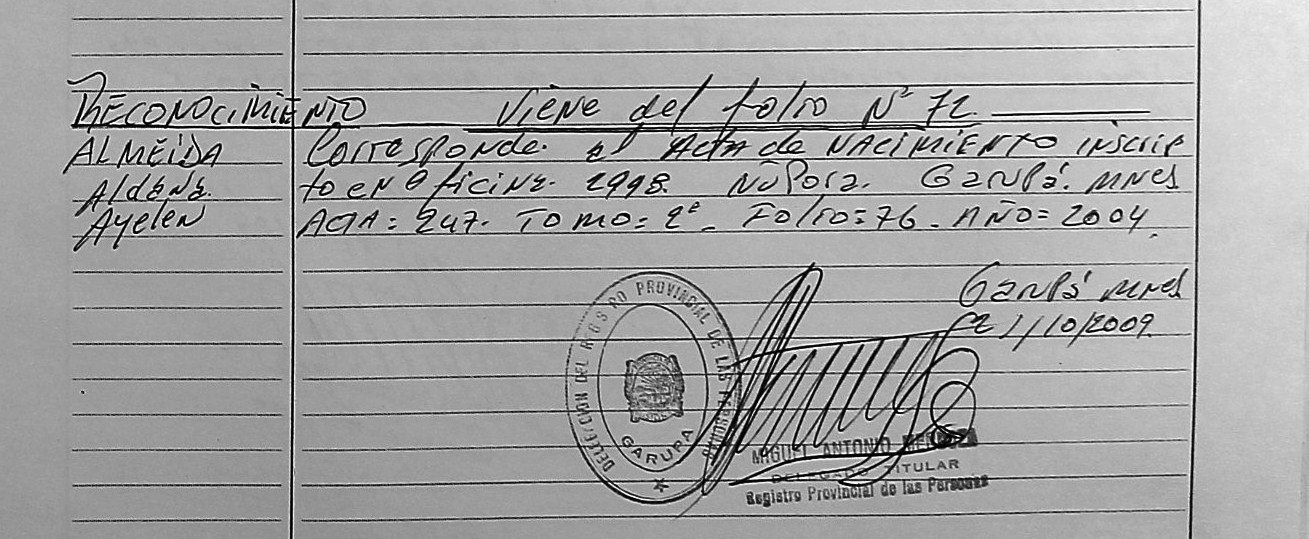 RECONOCIMIENTO Viene del folio Nº 72
ALMEIDA Corresponde al Acta de NACIMIENTO inscrip
Aldana to en Oficina 2998. Ñu Pora. Garupá. MNes
Ayelen ACTA = 247. TOMO = 2º. Folio = 76. AÑO = 2004.
Garupá MNes
/10/2009
DELEGACION DEL REGISTRO PROVINCIAL DE LAS PERSONAS
GARUPA
MIGUEL ANTONIO
DELEGADO TITULAR
Registro Provincial de las Personas